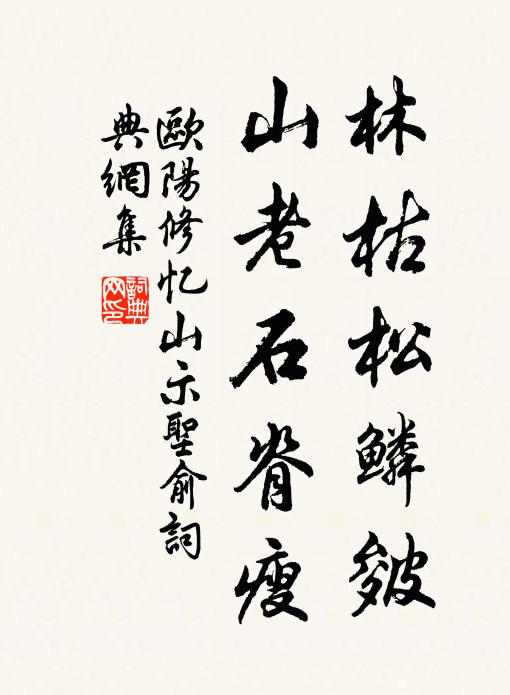 林枯松鱗皴
山老石脊瘦
歐陽修忆山示聖俞詞
典網集
詞典
网印